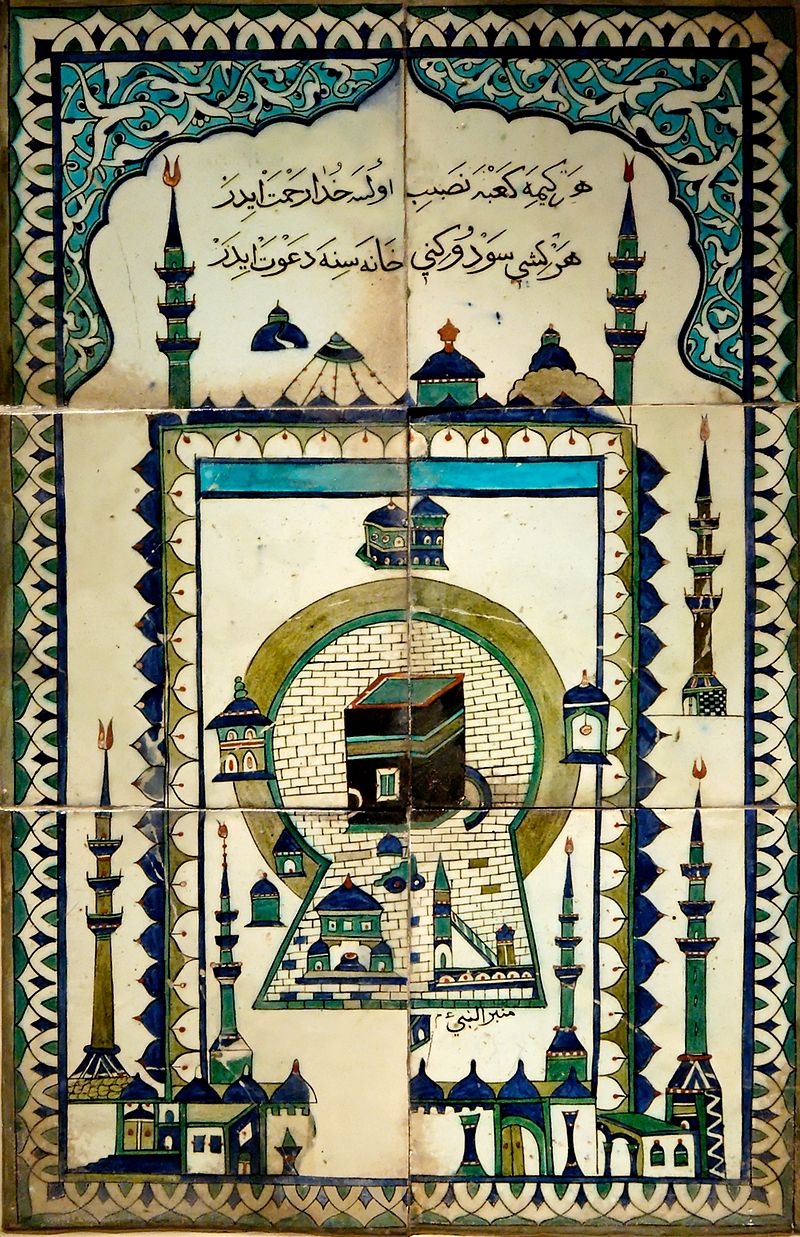 هَرْ كِيمَه كَعْبَه نَصَيب اولْسَه خُدَا رَحْمَتْ ايدَرْ
هَرْ كِشِي سَوْدُوكِنِي خَانَه سِنَه دَعْوَتْ ايدَرْ
منبر النبي ٤م